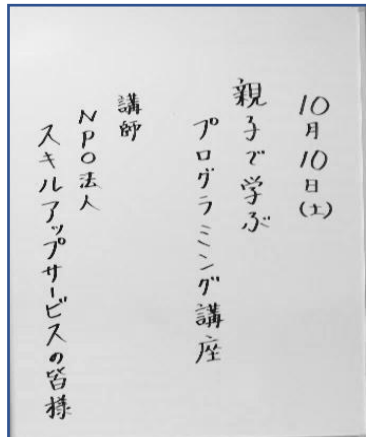 10月10日(土)
親子で学ぶ
プログラミング講座
講師
NPO法人
スキルアップサービスの皆様